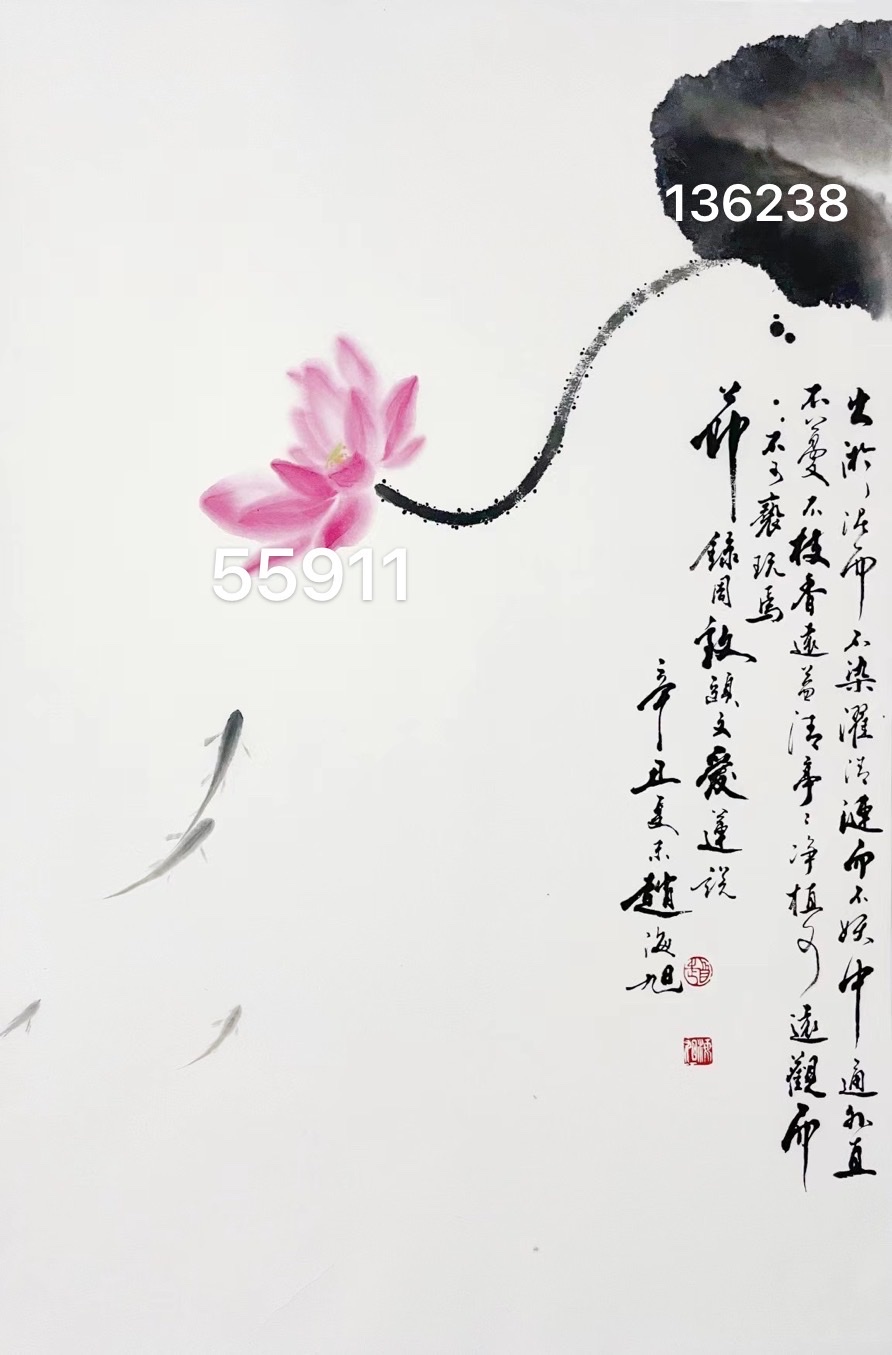 136238
55911
出淤泥而不染濯清漣而不妖中通外直
不蔓不枝香遠益清亭〻净植可遠觀而
不可褻玩焉
節錄周敦頤文愛蓮説
辛丑夏末趙海旭